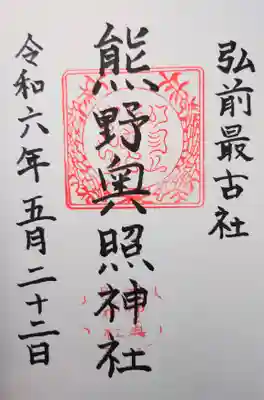 弘前最古社
熊野奥照神社
令和六年五月二十二日